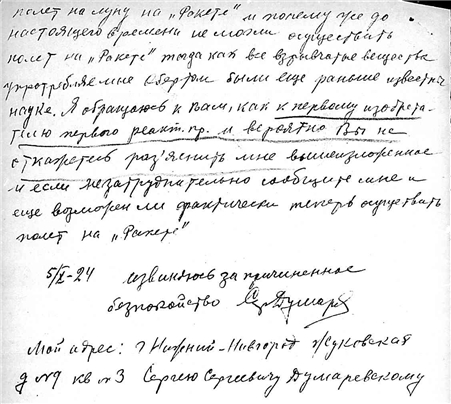 полет на луну на „Ракете" и почему уже до
настоящего времени не могли осуществить
полет на „Ракете" тогда как все взрывчатые вещества
употребляемые Обертом были еще раньше известны
науке. Я обращаюсь к Вам, как к первому изобрета-
телю первого реакт. пр. и вероятно Вы не
откажетесь раз'яснить мне вышеизложенное
и если незатруднительно сообщите мне и
еще возможен ли фактически теперь осуществить
полет на „Ракете"
5/X-24 извиняюсь за причиненное
безпокойство
Мой адрес: г Нижний-Новгород Жуковская
д №9 кв №3 Сергею Сергеевичу Думаревскому